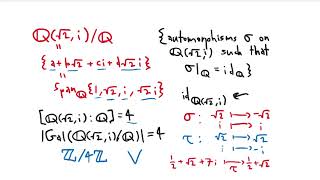 ℚ(√2, i)/ℚ
=
{a+b√2 + ci + d√2 i}
=
Span_ℚ{1, √2, i, √2 i}
[ℚ(√2, i) : ℚ] = 4
|Gal(ℚ(√2, i)/ℚ)| = 4
ℤ/4ℤ V
{automorphisms σ on
ℚ(√2, i) such that
σ|_ℚ = id_ℚ}
id_ℚ(√2, i) ←
σ: √2 ↦ -√2
i ↦ i
τ: √2 ↦ √2
i ↦ -i
½+√2+7i ↦_τ ½+√2